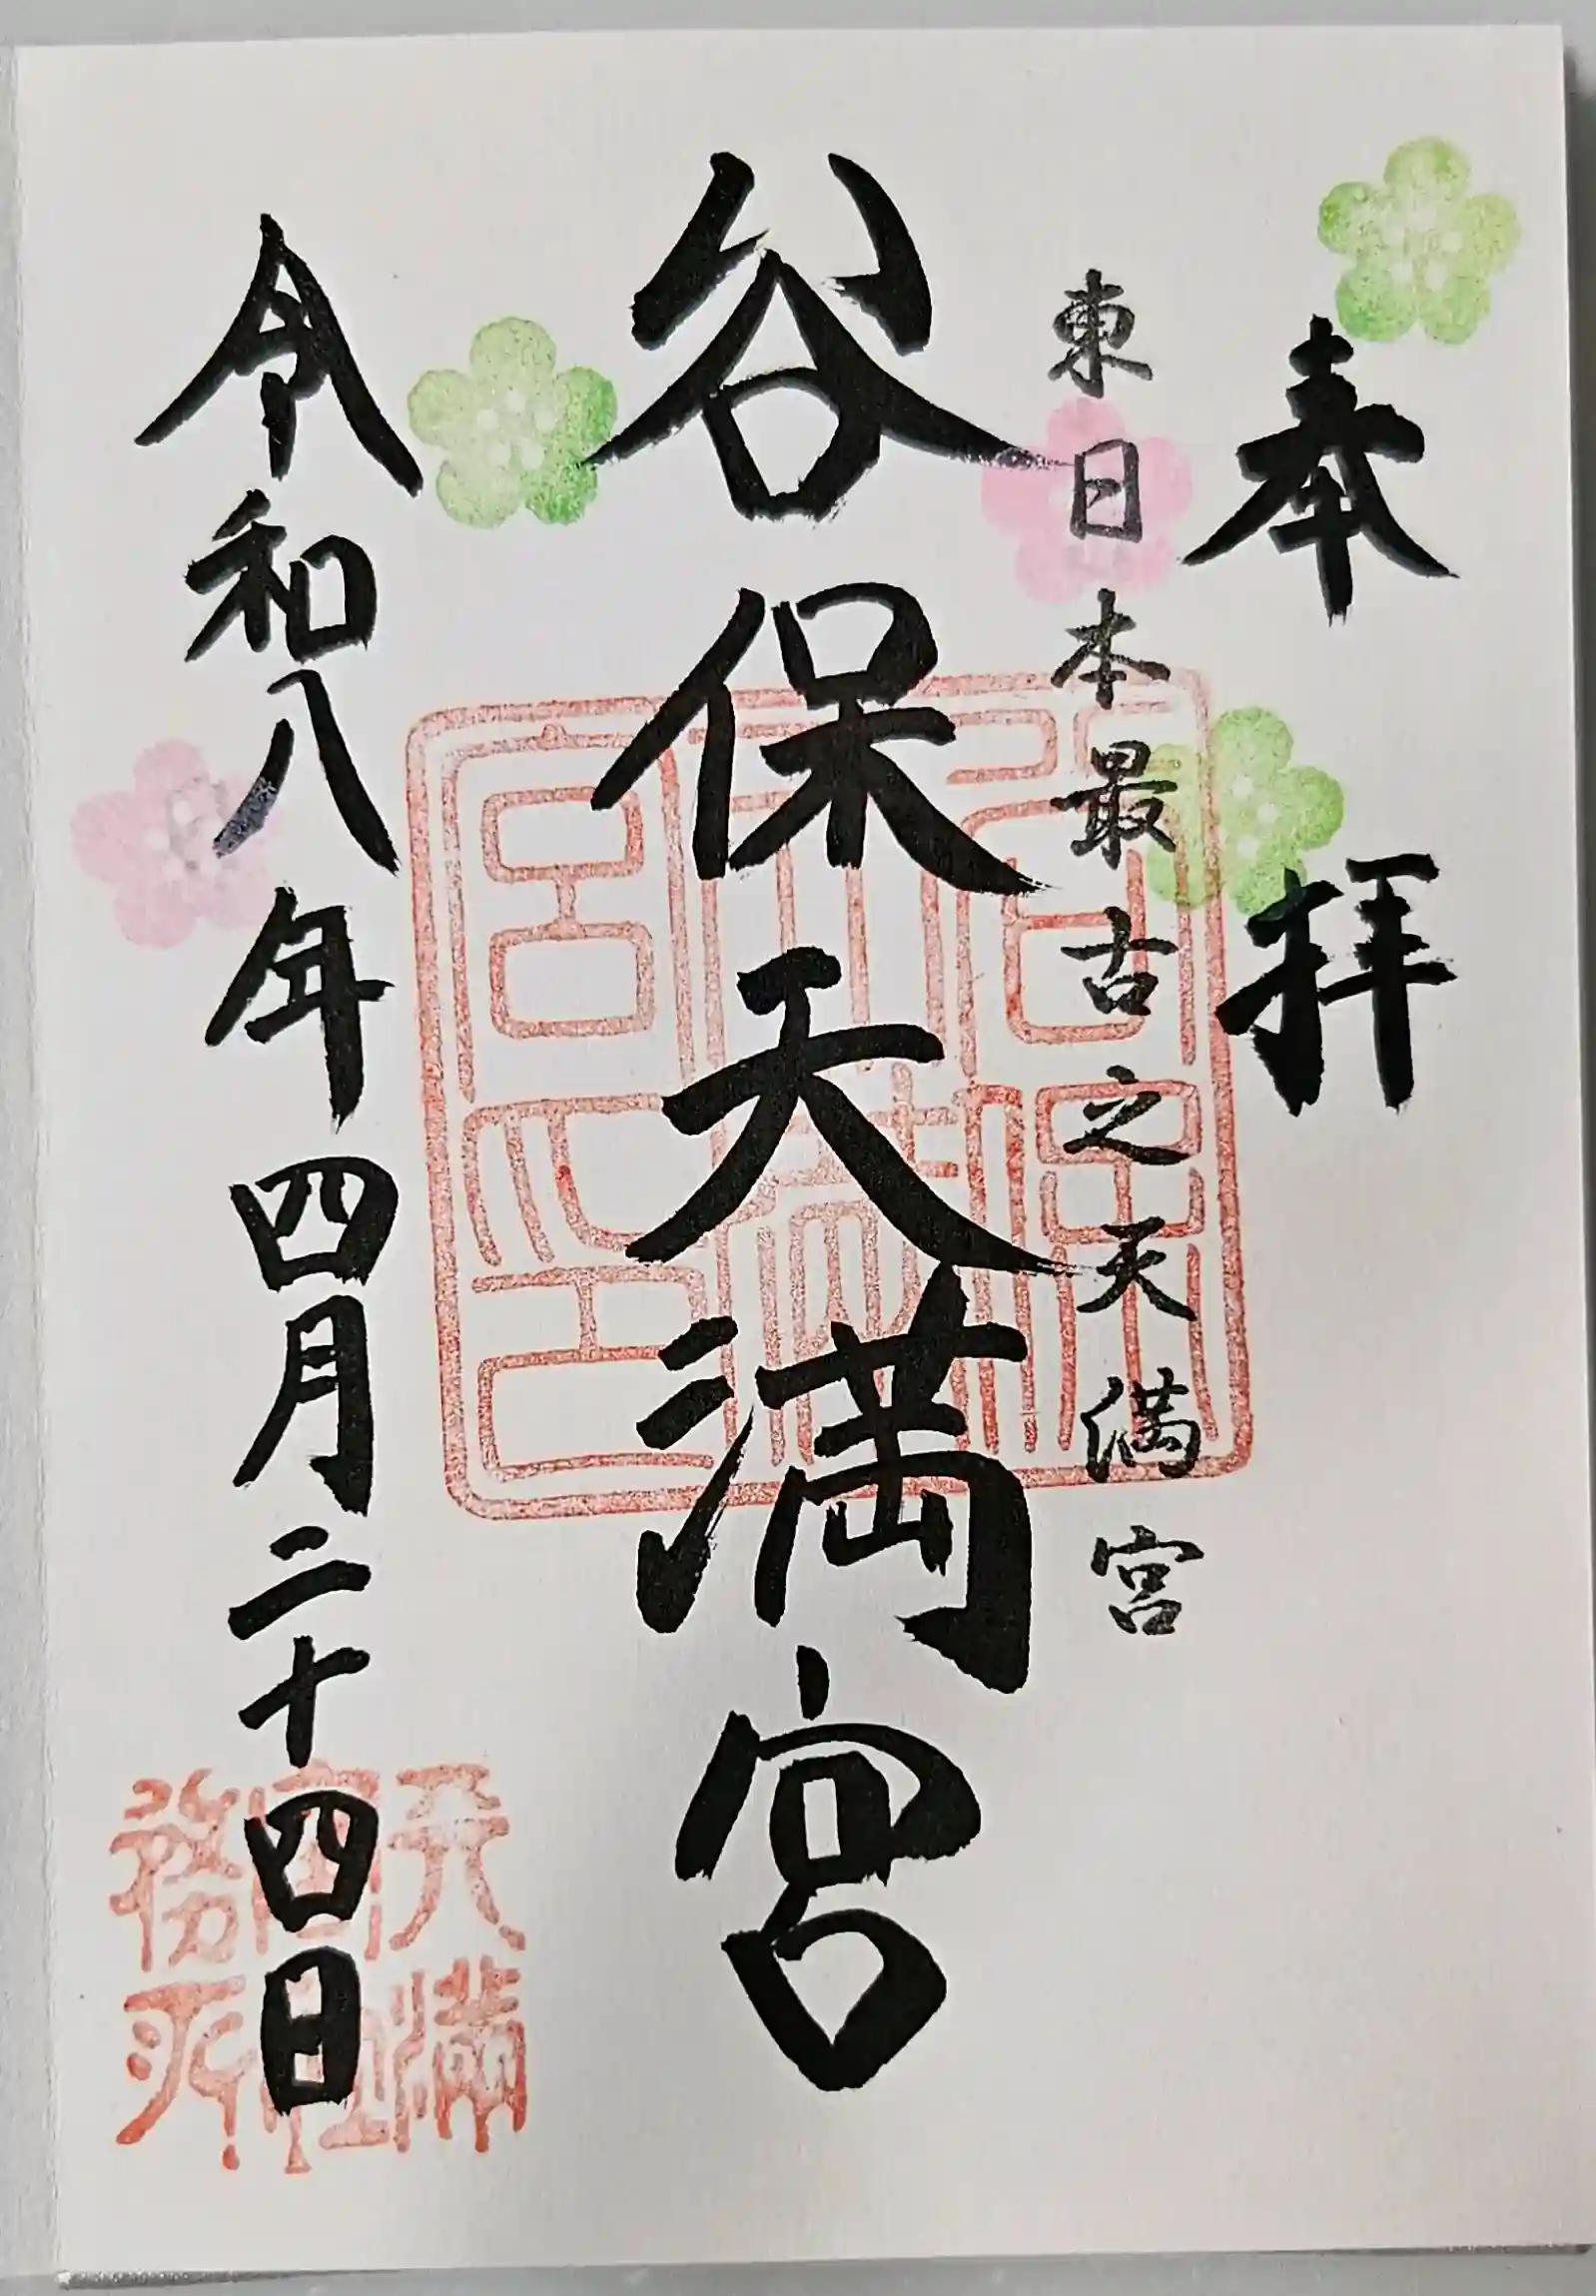 奉拝
東日本最古之天満宮
谷保天満宮
令和八年四月二十四日
天満
宮社
務所